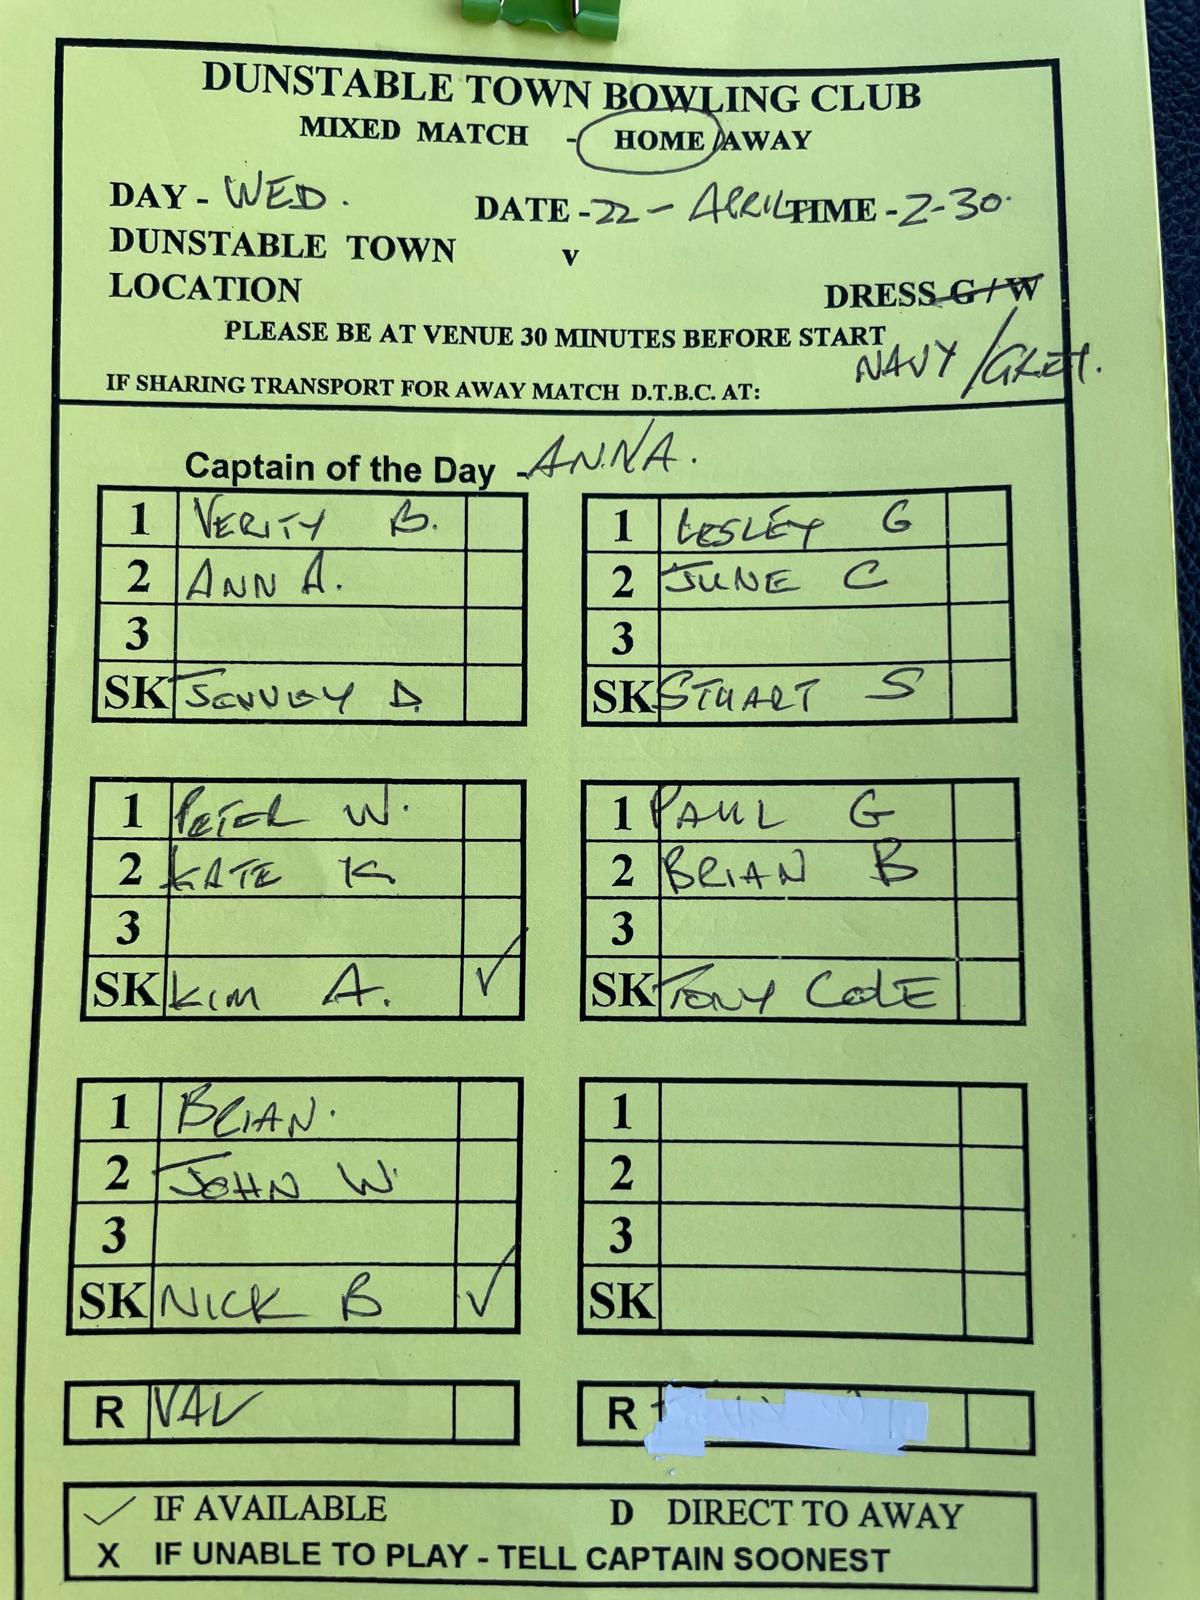 DUNSTABLE TOWN BOWLING CLUB
MIXED MATCH - HOME/AWAY
DAY - WED. DATE - 22 - APRIL TIME - 2-30.
DUNSTABLE TOWN v
LOCATION DRESS G/W
PLEASE BE AT VENUE 30 MINUTES BEFORE START
NAVY/GREY.
IF SHARING TRANSPORT FOR AWAY MATCH D.T.B.C. AT:
Captain of the Day - ANNA.
1 VERITY B.
2 ANN A.
3
SK JENNEY D.
1 LESLEY G
2 JUNE C
3
SK STUART S
1 PETER W.
2 KATE K
3
SK KIM A. ✓
1 PAUL G
2 BRIAN B
3
SK TONY COLE
1 BRIAN.
2 JOHN W.
3
SK NICK B ✓
1
2
3
SK
R VAL
R
✓ IF AVAILABLE D DIRECT TO AWAY
X IF UNABLE TO PLAY - TELL CAPTAIN SOONEST